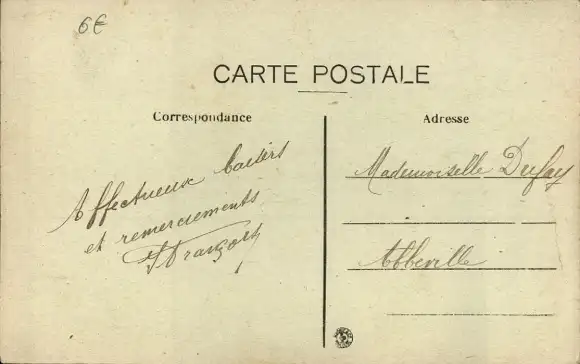 6€
CARTE POSTALE
Correspondance
Affectueux baisers
et remerciements
Adresse
Mademoiselle Dufay
Abbeville